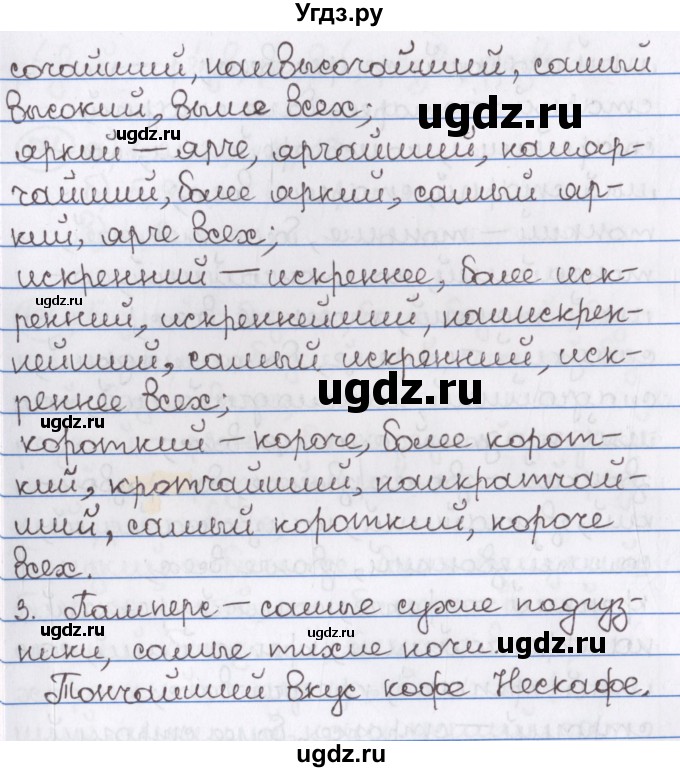 Угдз.ру
сочайший, наивысочайший, самый
высокий, выше всех;
ugdz.ru
ugdz.ru
яркий — ярче, ярчайший, наияр-
чайший, более яркий, самый яр-
кий, ярче всех;
искренний — искреннее, более иск-
ugdz.ru
ренний, искреннейший, наискрен-
нейший, самый искренний, иск-
ugdz.ru
реннее всех;
ugdz.ru
короткий — короче, более корот-
кий, кротчайший, наикратчай-
ший, самый короткий, короче
всех.
ugdz.ru
3. Памперс — самые сухие подгуз-
ugdz.ru
ugdz.ru
ники, самые тихие ночи.
ugdz.ru
Тончайший вкус кофе Нескафе.
ugdz.ru